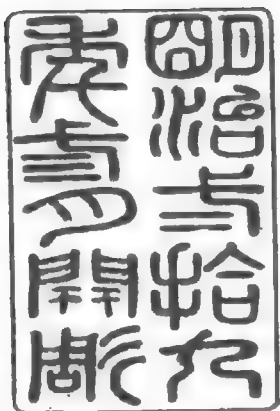 明治弍拾九
年弎月開彫